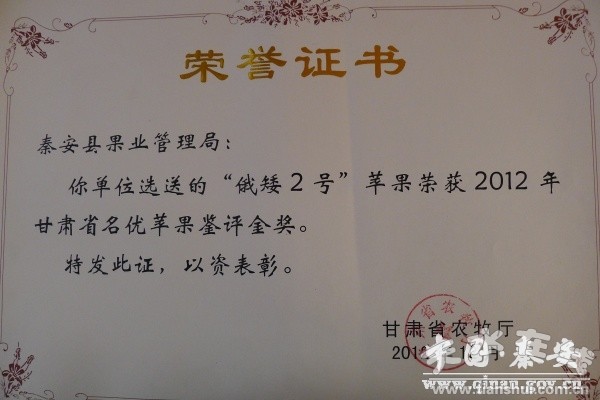 荣誉证书
秦安县果业管理局：
你单位选送的“俄矮2号”苹果荣获2012年
甘肃省名优苹果鉴评金奖。
特发此证，以资表彰。
甘肃省农牧厅
201
月
中国·秦安
www.qinan.gov.cn
www.tianshui.com.cn